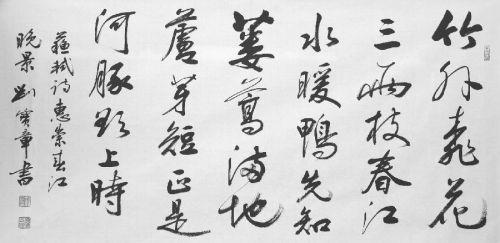 竹外桃花
三兩枝春江
水暖鴨先知
蔞蒿滿地
蘆芽短正是
河豚欲上時
蘇軾詩惠崇春江
晚景 劉寶章書